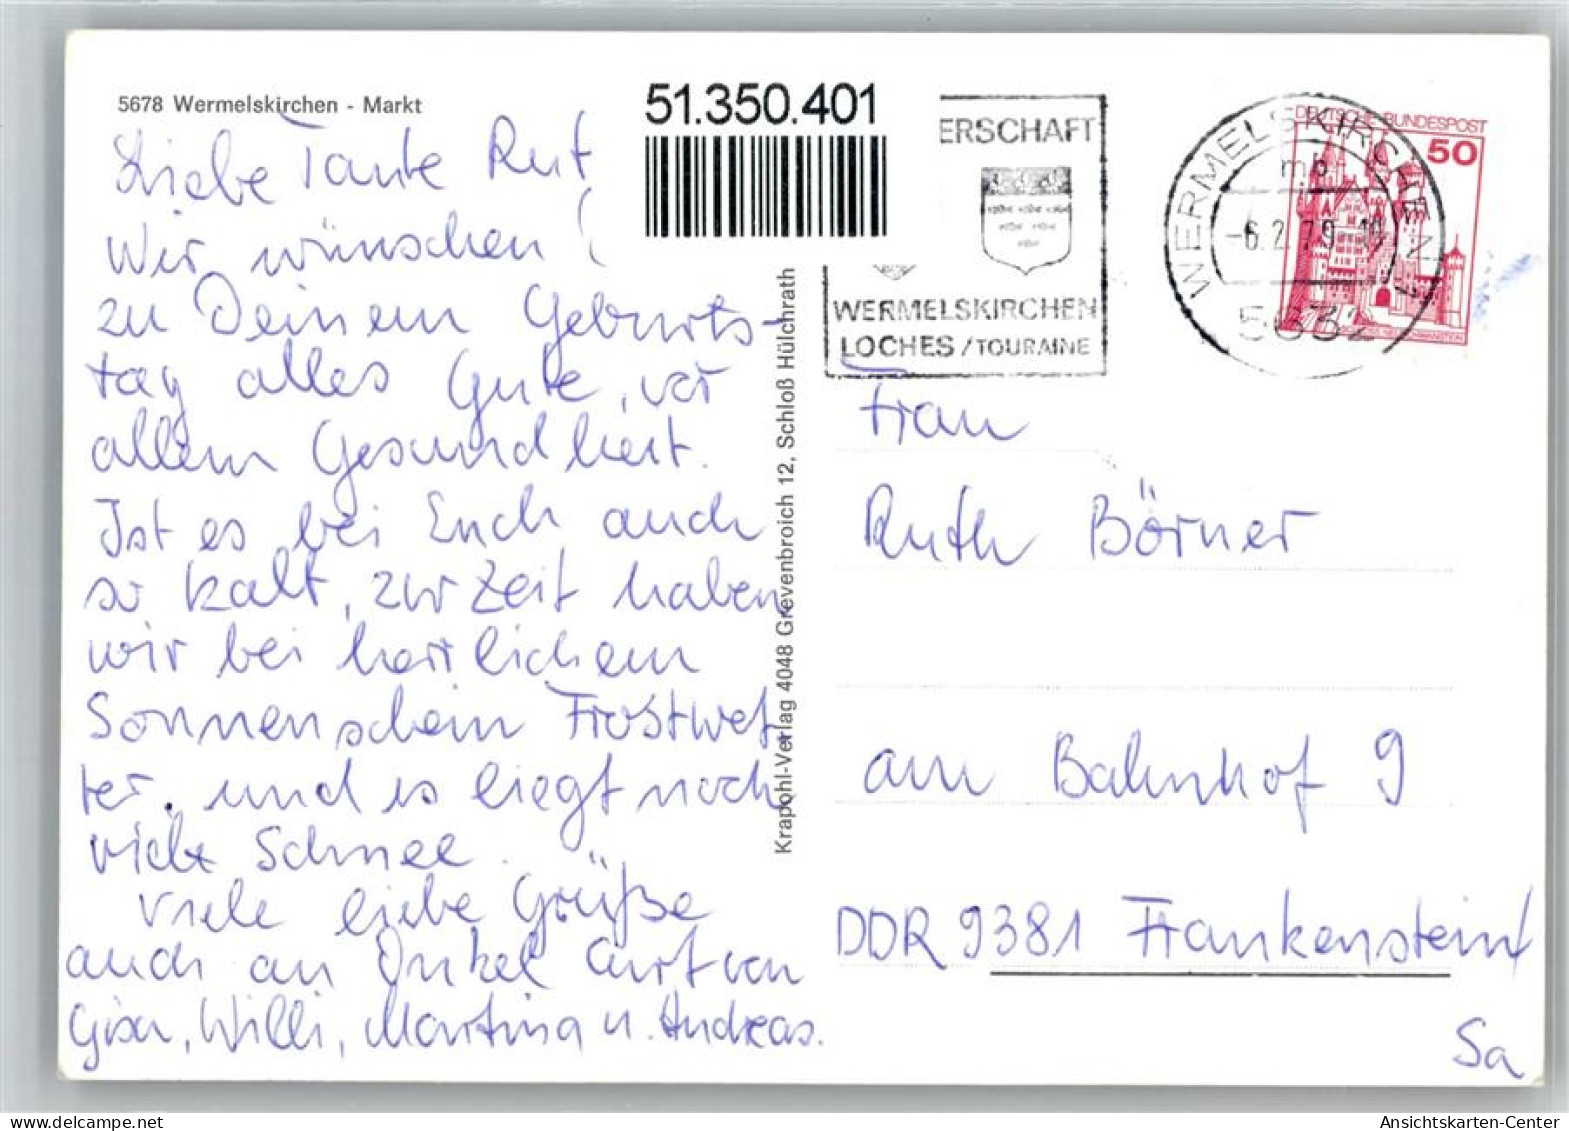 5678 Wermelskirchen - Markt
51.350.401
Liebe Tante Rut
Wir wünschen (
zu Deinem Geburts-
tag alles Gute, vor
allem Gesundheit.
Ist es bei Euch auch
so kalt, zur Zeit haben
wir bei herrlichem
Sonnenschein Frostwet
ter. und es liegt noch
viele Schnee.
Viele liebe Grüße
auch an Onkel Curt von
Gisa, Willi, Martina u. Andreas.
Krapohl-Verlag 4048 Grevenbroich 12, Schloß Hülchrath
ERSCHAFT
WERMELSKIRCHEN
LOCHES/TOURAINE
WERMELSKIRCHEN 1
mb
-6.2.79-18
5632
DEUTSCHE BUNDESPOST
50
Frau
Ruth Börner
am Bahnhof 9
DDR 9381 Frankenstein/
Sa
Ansichtskarten-Center